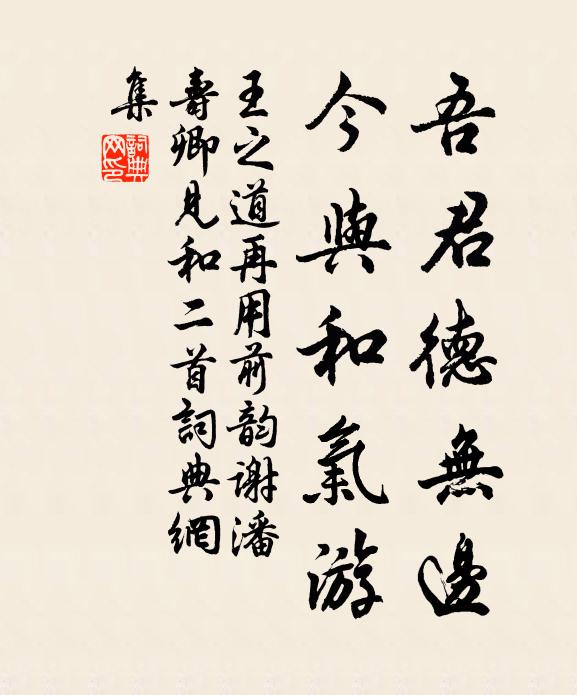 吾君德無邊
今與和氣游
王之道再用前韵謝潘
壽卿見和二首詞典網
集
詞典網印